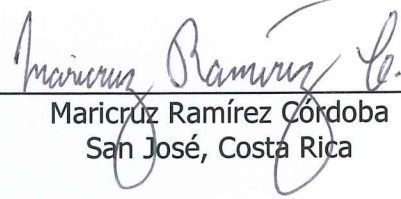 Maricruz Ramírez C.
Maricruz Ramírez Córdoba
San José, Costa Rica